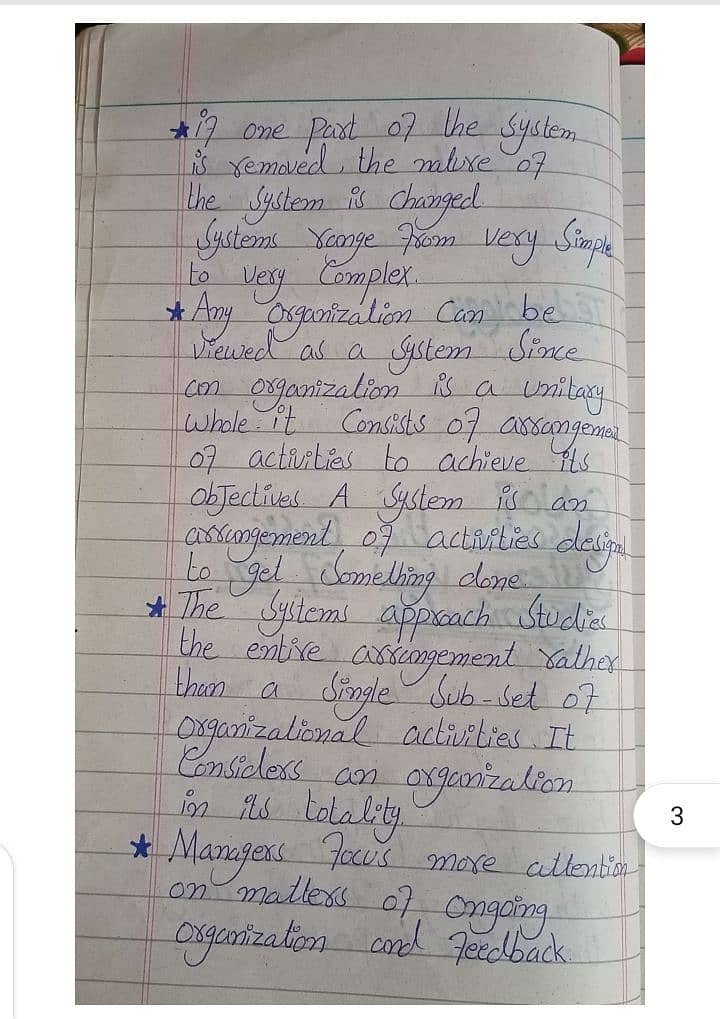 ★ if one Part of the System
is removed, the nature of
the System is changed
Systems range from very Simple
to very Complex.
★ Any Organization Can be
viewed as a System Since
an organization is a unitary
whole. it Consists of arrangement
of activities to achieve its
objectives. A System is an
arrangement of activities designed
to get Something done.
★ The Systems approach Studies
the entire arrangement rather
than a Single Sub-set of
organizational activities. It
Considers an organization
in its totality.
★ Managers focus more attention
on matters of ongoing
organization and feedback.
3